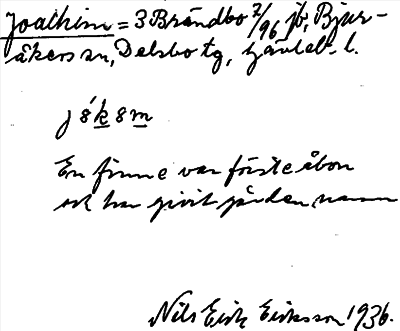 Joachim = 3 Brändbo 7/96 jb, Bjur-
åkers sn, Delsbo tg, Gävleb. l.
j 8́ k 8 m
En finne var förste åbon
och har givit gården namn
Nils Erik Eriksson 1936.